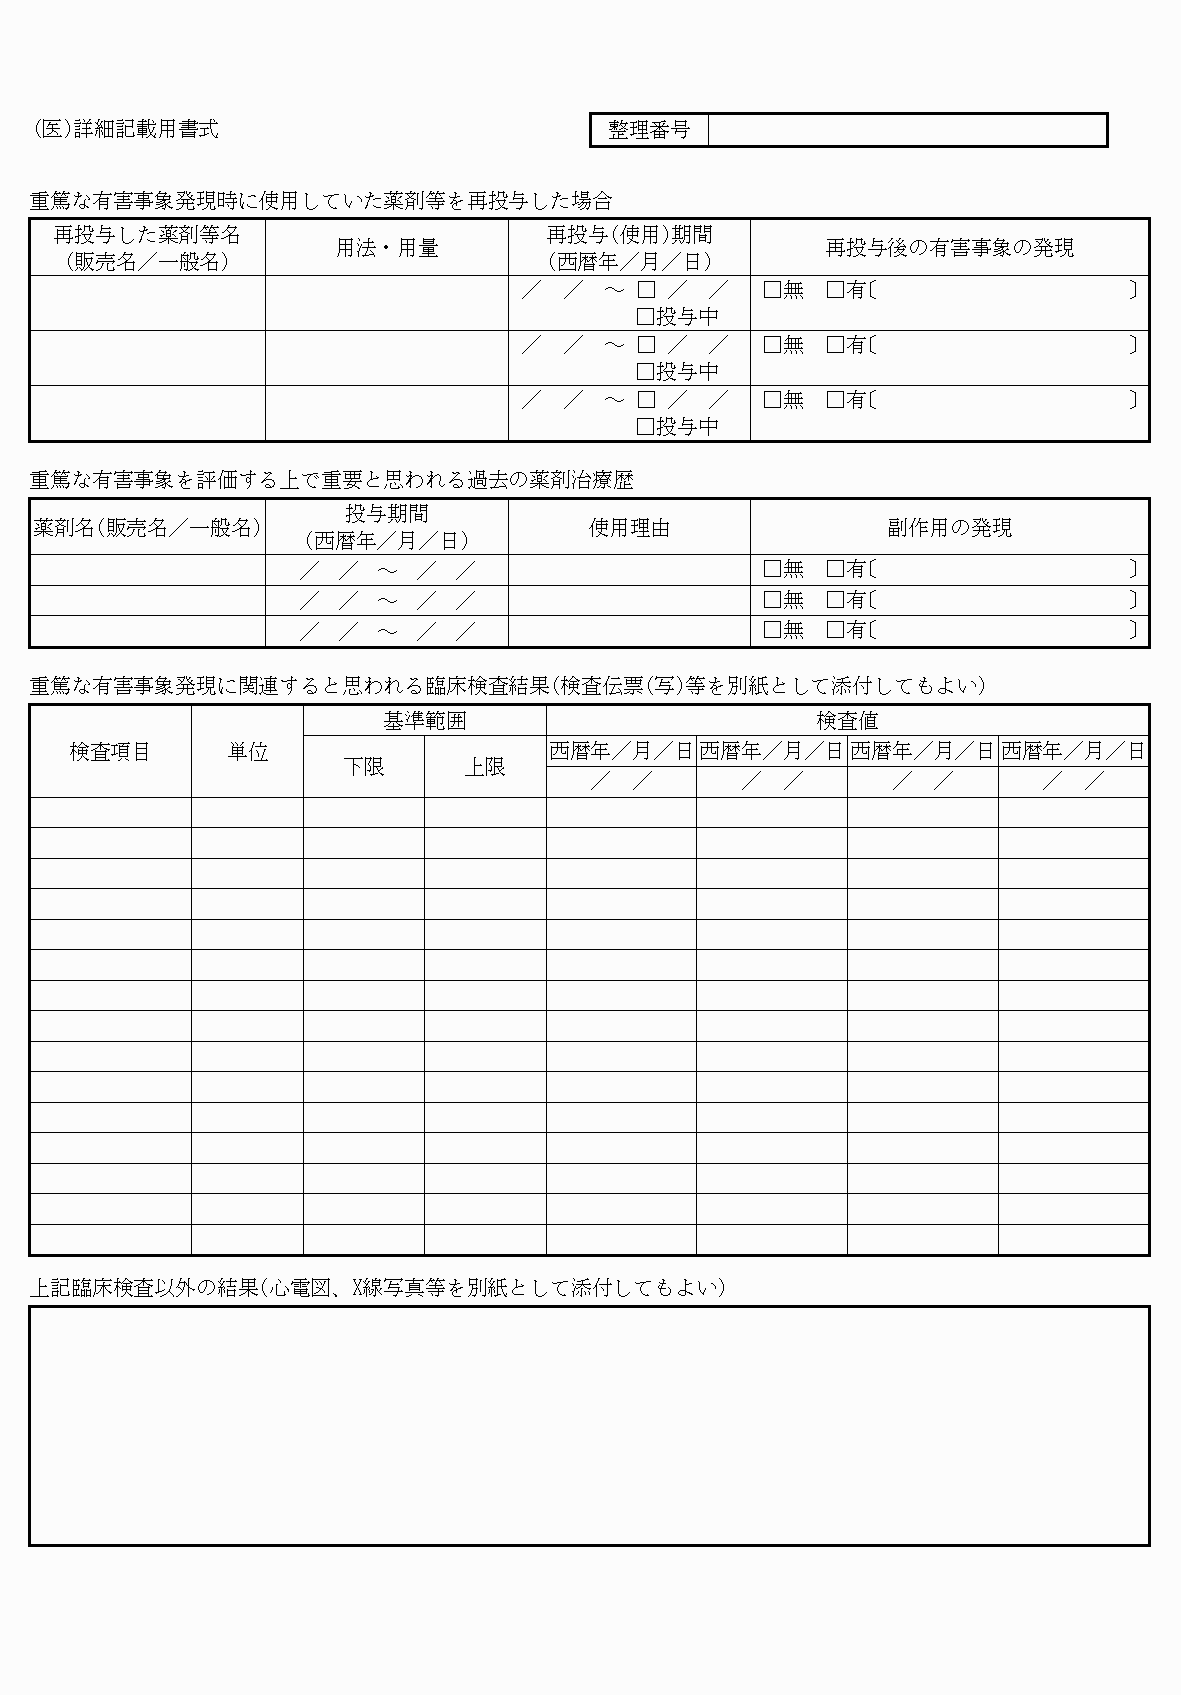 (医)詳細記載用書式
整理番号
重篤な有害事象発現時に使用していた薬剤等を再投与した場合
再投与した薬剤等名
(販売名／一般名)
用法・用量
再投与(使用)期間
(西暦年／月／日)
再投与後の有害事象の発現
／　／　～ □ ／　／
□投与中
□無　□有〔　　　　　　　　　　　　〕
／　／　～ □ ／　／
□投与中
□無　□有〔　　　　　　　　　　　　〕
／　／　～ □ ／　／
□投与中
□無　□有〔　　　　　　　　　　　　〕
重篤な有害事象を評価する上で重要と思われる過去の薬剤治療歴
薬剤名(販売名／一般名)
投与期間
(西暦年／月／日)
使用理由
副作用の発現
／　／　～　／　／
□無　□有〔　　　　　　　　　　　　〕
／　／　～　／　／
□無　□有〔　　　　　　　　　　　　〕
／　／　～　／　／
□無　□有〔　　　　　　　　　　　　〕
重篤な有害事象発現に関連すると思われる臨床検査結果(検査伝票(写)等を別紙として添付してもよい)
検査項目
単位
基準範囲
下限
上限
検査値
西暦年／月／日
西暦年／月／日
西暦年／月／日
西暦年／月／日
／　／
／　／
／　／
／　／
上記臨床検査以外の結果(心電図、X線写真等を別紙として添付してもよい)